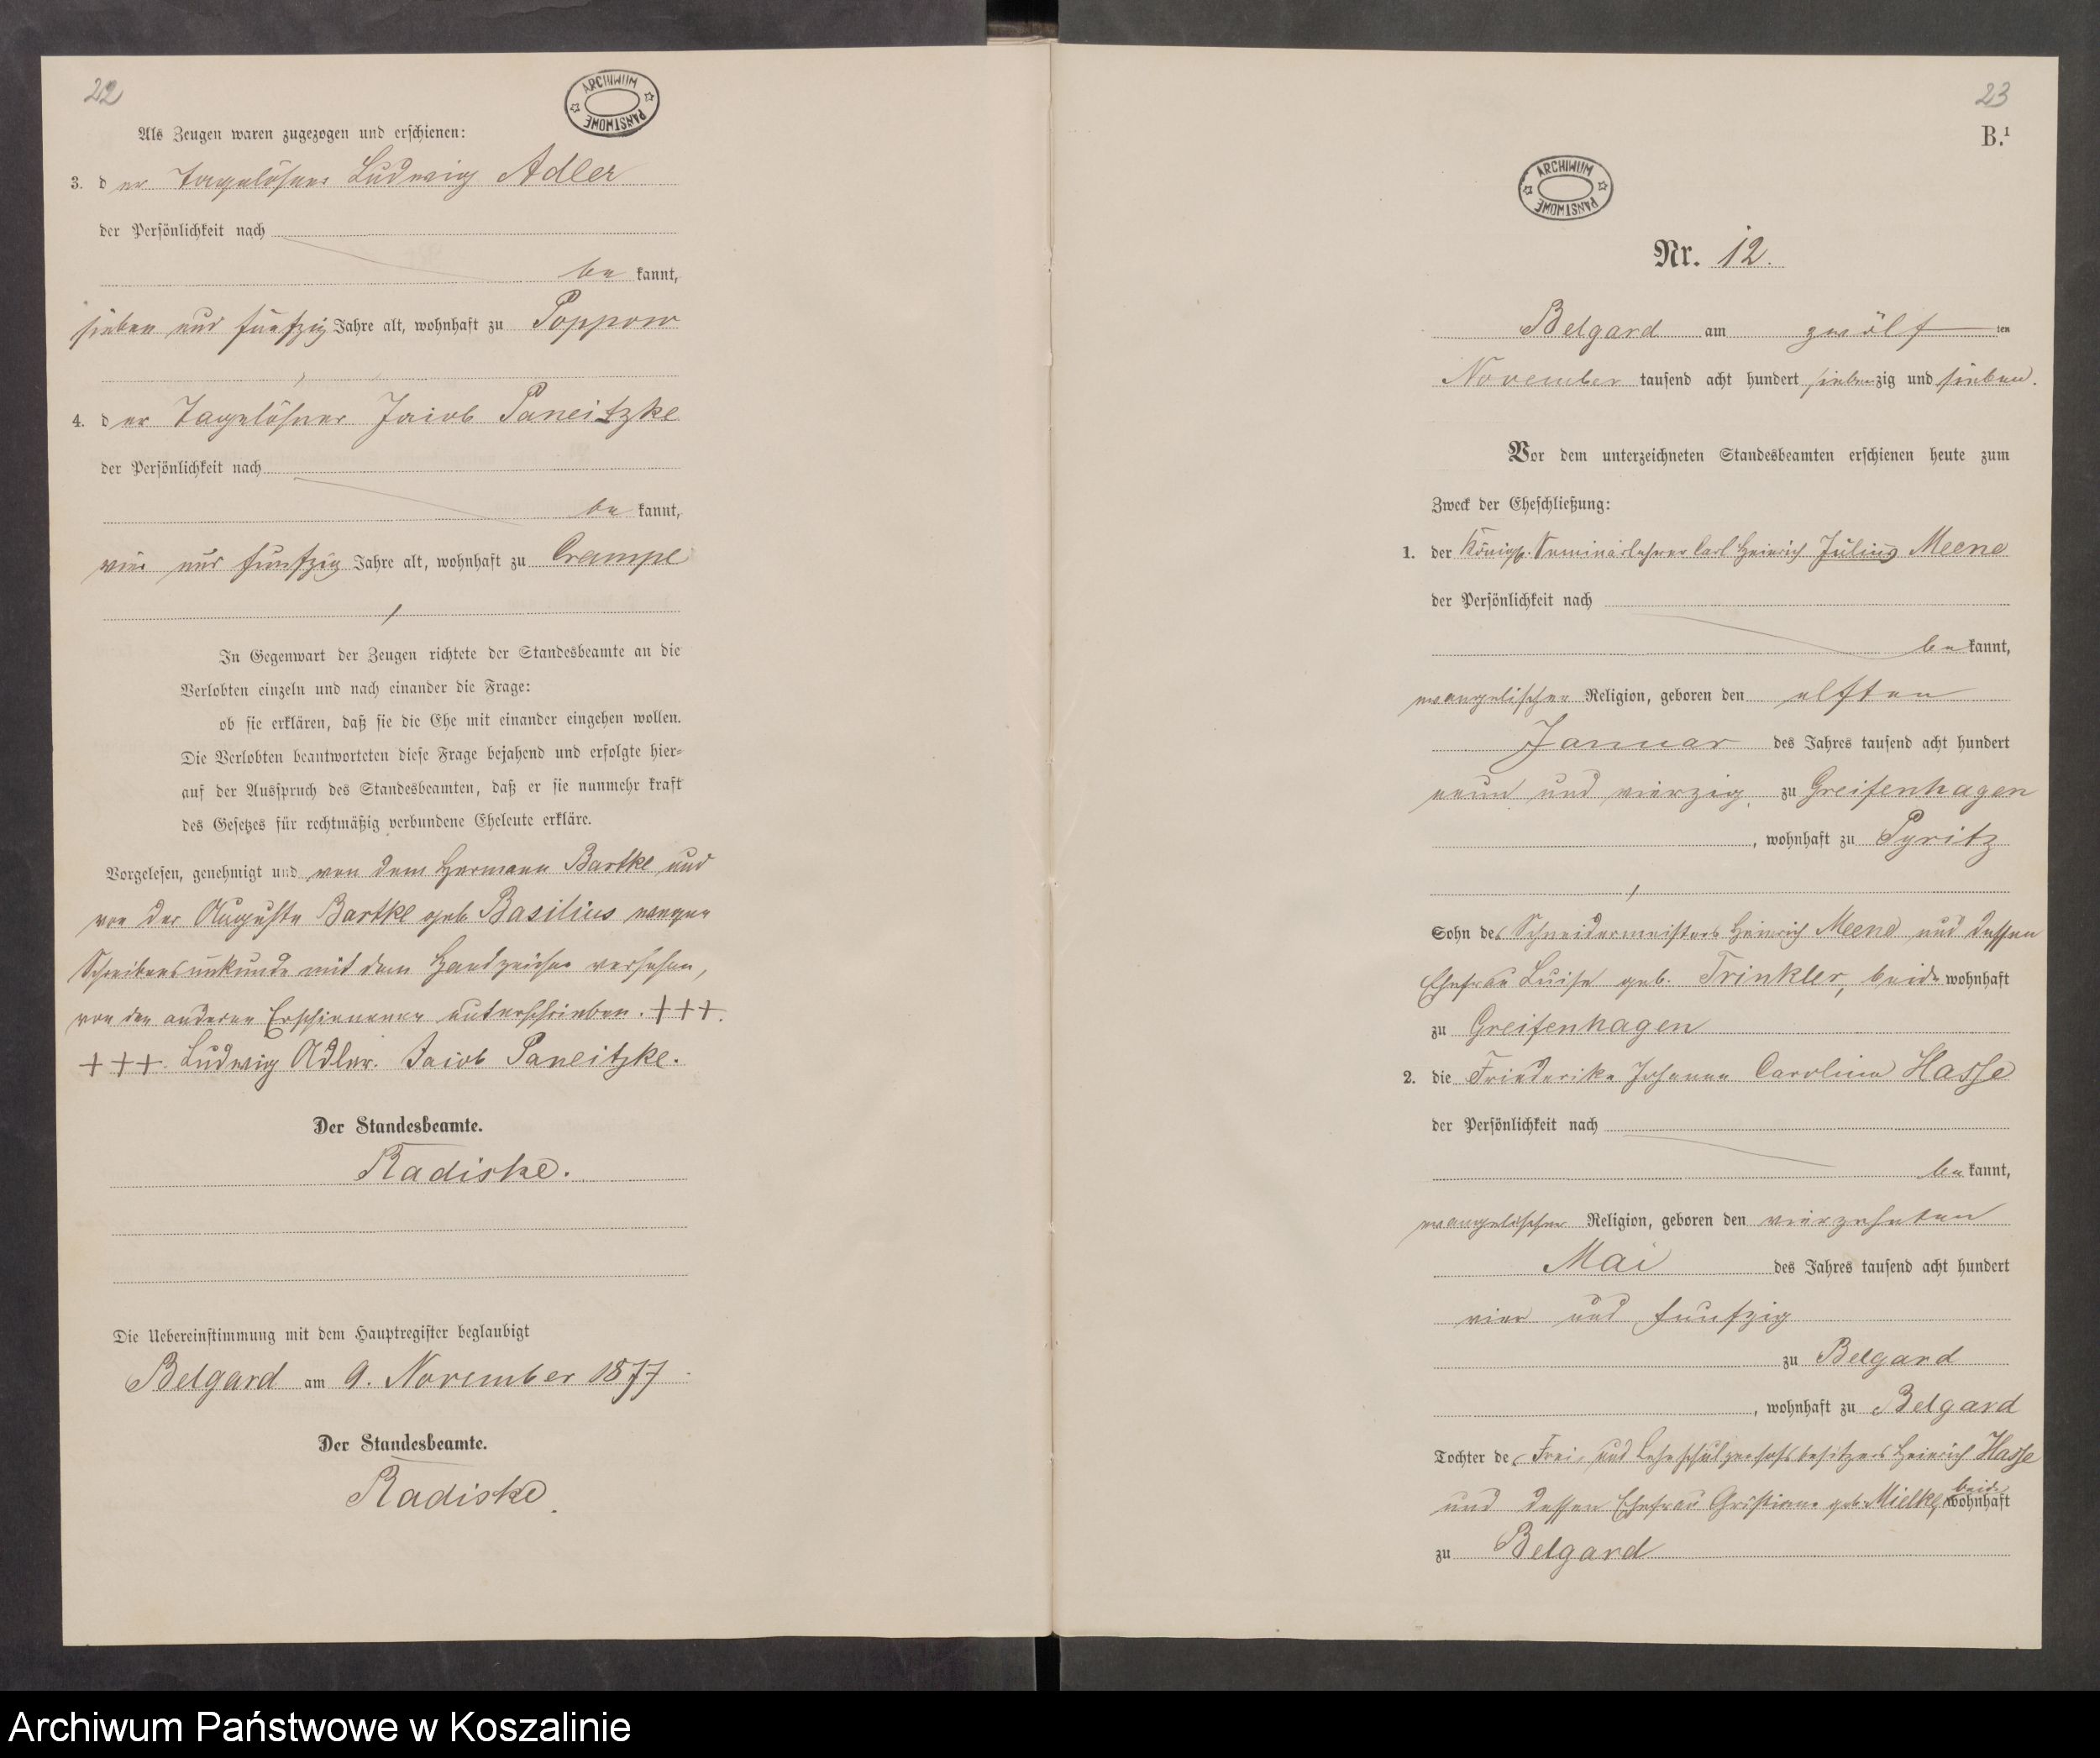 22
ARCHIWUM PAŃSTWOWE
Als Zeugen waren zugezogen und erschienen:
3. der Tagelöhner Ludwig Adler
der Persönlichkeit nach
be kannt,
sieben und fünfzig Jahre alt, wohnhaft zu Poppow
4. der Tagelöhner Jacob Paneitzke
der Persönlichkeit nach
be kannt,
vier und fünfzig Jahre alt, wohnhaft zu Crampe
In Gegenwart der Zeugen richtete der Standesbeamte an die
Verlobten einzeln und nach einander die Frage:
ob sie erklären, daß sie die Ehe mit einander eingehen wollen.
Die Verlobten beantworteten diese Frage bejahend und erfolgte hier-
auf der Ausspruch des Standesbeamten, daß er sie nunmehr kraft
des Gesetzes für rechtmäßig verbundene Eheleute erkläre.
Vorgelesen, genehmigt und von dem Hermann Bartke und
von der Auguste Bartke geb. Basilius wegen
Schreibensunkunde mit dem Handzeichen versehen,
von den anderen Erschienenen unterschrieben. +++.
+++. Ludwig Adler. Jacob Paneitzke.
Der Standesbeamte.
Radiske.
Die Uebereinstimmung mit dem Hauptregister beglaubigt
Belgard am 9. November 1877.
Der Standesbeamte.
Radiske.
23
B.1
ARCHIWUM PAŃSTWOWE
Nr. 12.
Belgard am zwölf ten
November tausend acht hundert siebenzig und sieben.
Vor dem unterzeichneten Standesbeamten erschienen heute zum
Zweck der Eheschließung:
1. der Königl. Seminarlehrer Carl Heinrich Julius Meene
der Persönlichkeit nach
be kannt,
evangelischer Religion, geboren den elften
Januar des Jahres tausend acht hundert
neun und vierzig, zu Greifenhagen
, wohnhaft zu Pyritz
Sohn des Schneidermeisters Heinrich Meene und dessen
Ehefrau Luise geb. Trinkler, beide wohnhaft
zu Greifenhagen
2. die Friederike Johanne Caroline Hasse
der Persönlichkeit nach
be kannt,
evangelischer Religion, geboren den vierzehnten
Mai des Jahres tausend acht hundert
vier und fünfzig
zu Belgard
, wohnhaft zu Belgard
Tochter des Frei- und Lehnschulzenhofsbesitzers Heinrich Hasse
und dessen Ehefrau Christiane geb. Mielke, beide wohnhaft
zu Belgard
Archiwum Państwowe w Koszalinie